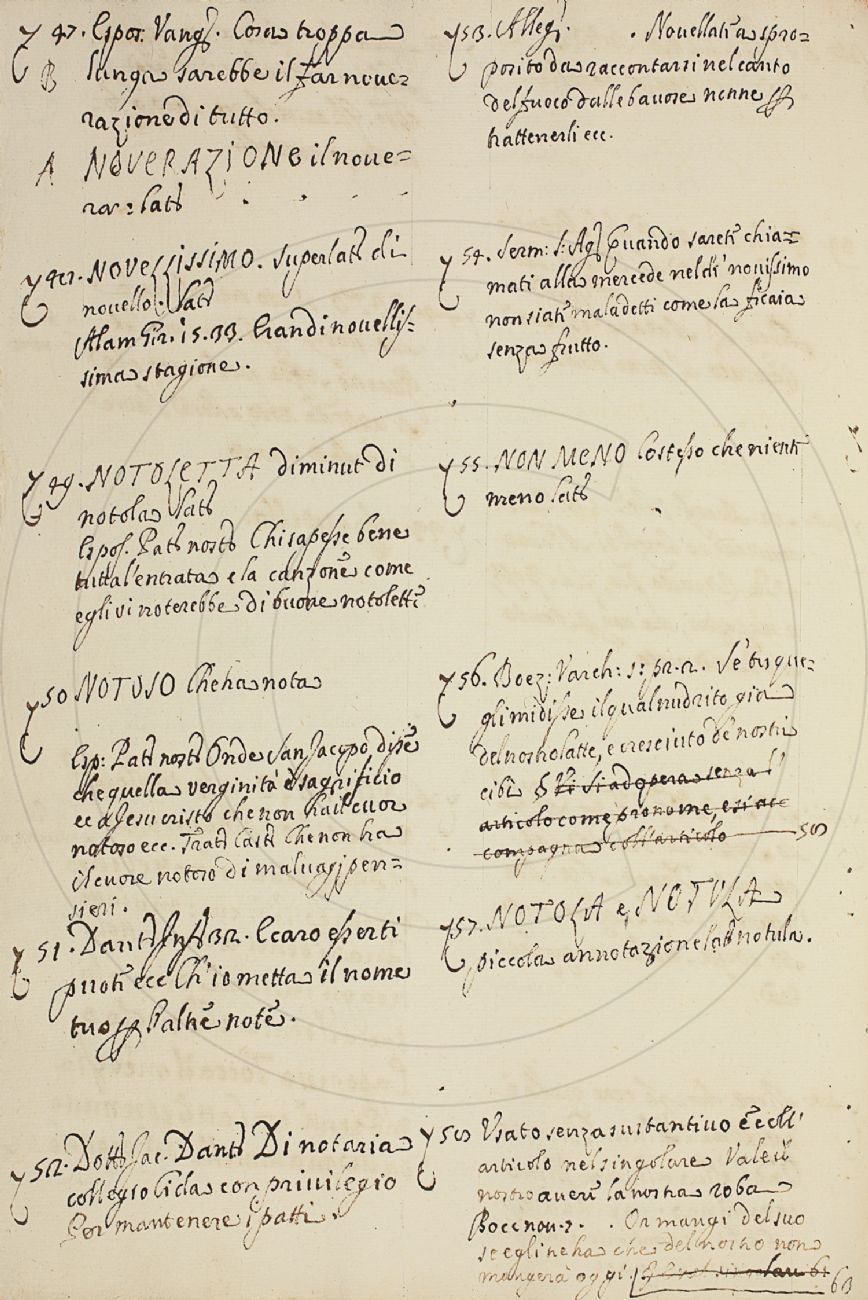 47. Espos: Vang. Cosa troppa
B lunga sarebbe il far nove=
razione di tutto.
A NOVERAZIONE il nove=
rar: Lat.
48. NOVELLISSIMO. Superlat. di
novello. Lat.
Alam. Gir. 15. 33. E andi novellis-
sima stagione.
49. NOTOLETTA diminut di
notola Lat.
Espos. Pat. nost. Chi sapesse bene
tutta l'entrata e la canzone come
egli vi noterebbe di buone notolette
50 NOTOSO Che ha nota
Esp: Pat. nost. Onde San Jacopo disse
che quella verginità è sagrificio
ec a Jesucristo che non ha il cuor
notoso ecc. Tratt. Cast. Che non ha
il cuore notoso di malvagj pen=
sieri.
51. Dant. Inf. 32. E caro esserti
puote ecc Ch'io metta il nome
tuo Ꝭ l'altre note.
52. Dott. Jac. Dant. Di notaria
collegio con privilegio
Per mantenere i patti.
53. Alleg. . Novellate a spro=
posito da raccontarsi nel canto
del fuoco dalle bavose nonne
trattenerli ecc.
54. Serm: S: Ag. Quando sarete chia=
mati alla mercede nel dì novissimo
non siate maladetti come la ficaia
senza frutto.
55. NON MENO Lo stesso che niente
meno Lat.
56. Boez: Varch: 1: pr. 2. Se' tu que=
gli mi disse il qual nudrito già
del nostro latte, e cresciuto de nostri
cibi § Si adopera senza l'
articolo come pronome, e si ac
compagna coll'articolo 58
57. NOTOLA e NOTULA
piccola annotazione Lat. notula.
58 Usato senza sustantivo e coll'
articolo nel singolare Vale il
nostro avere la nostra roba
Bocc nov. 2. . Or mangi del suo
se egli ne ha che del nostro non
mangerà oggi. 63